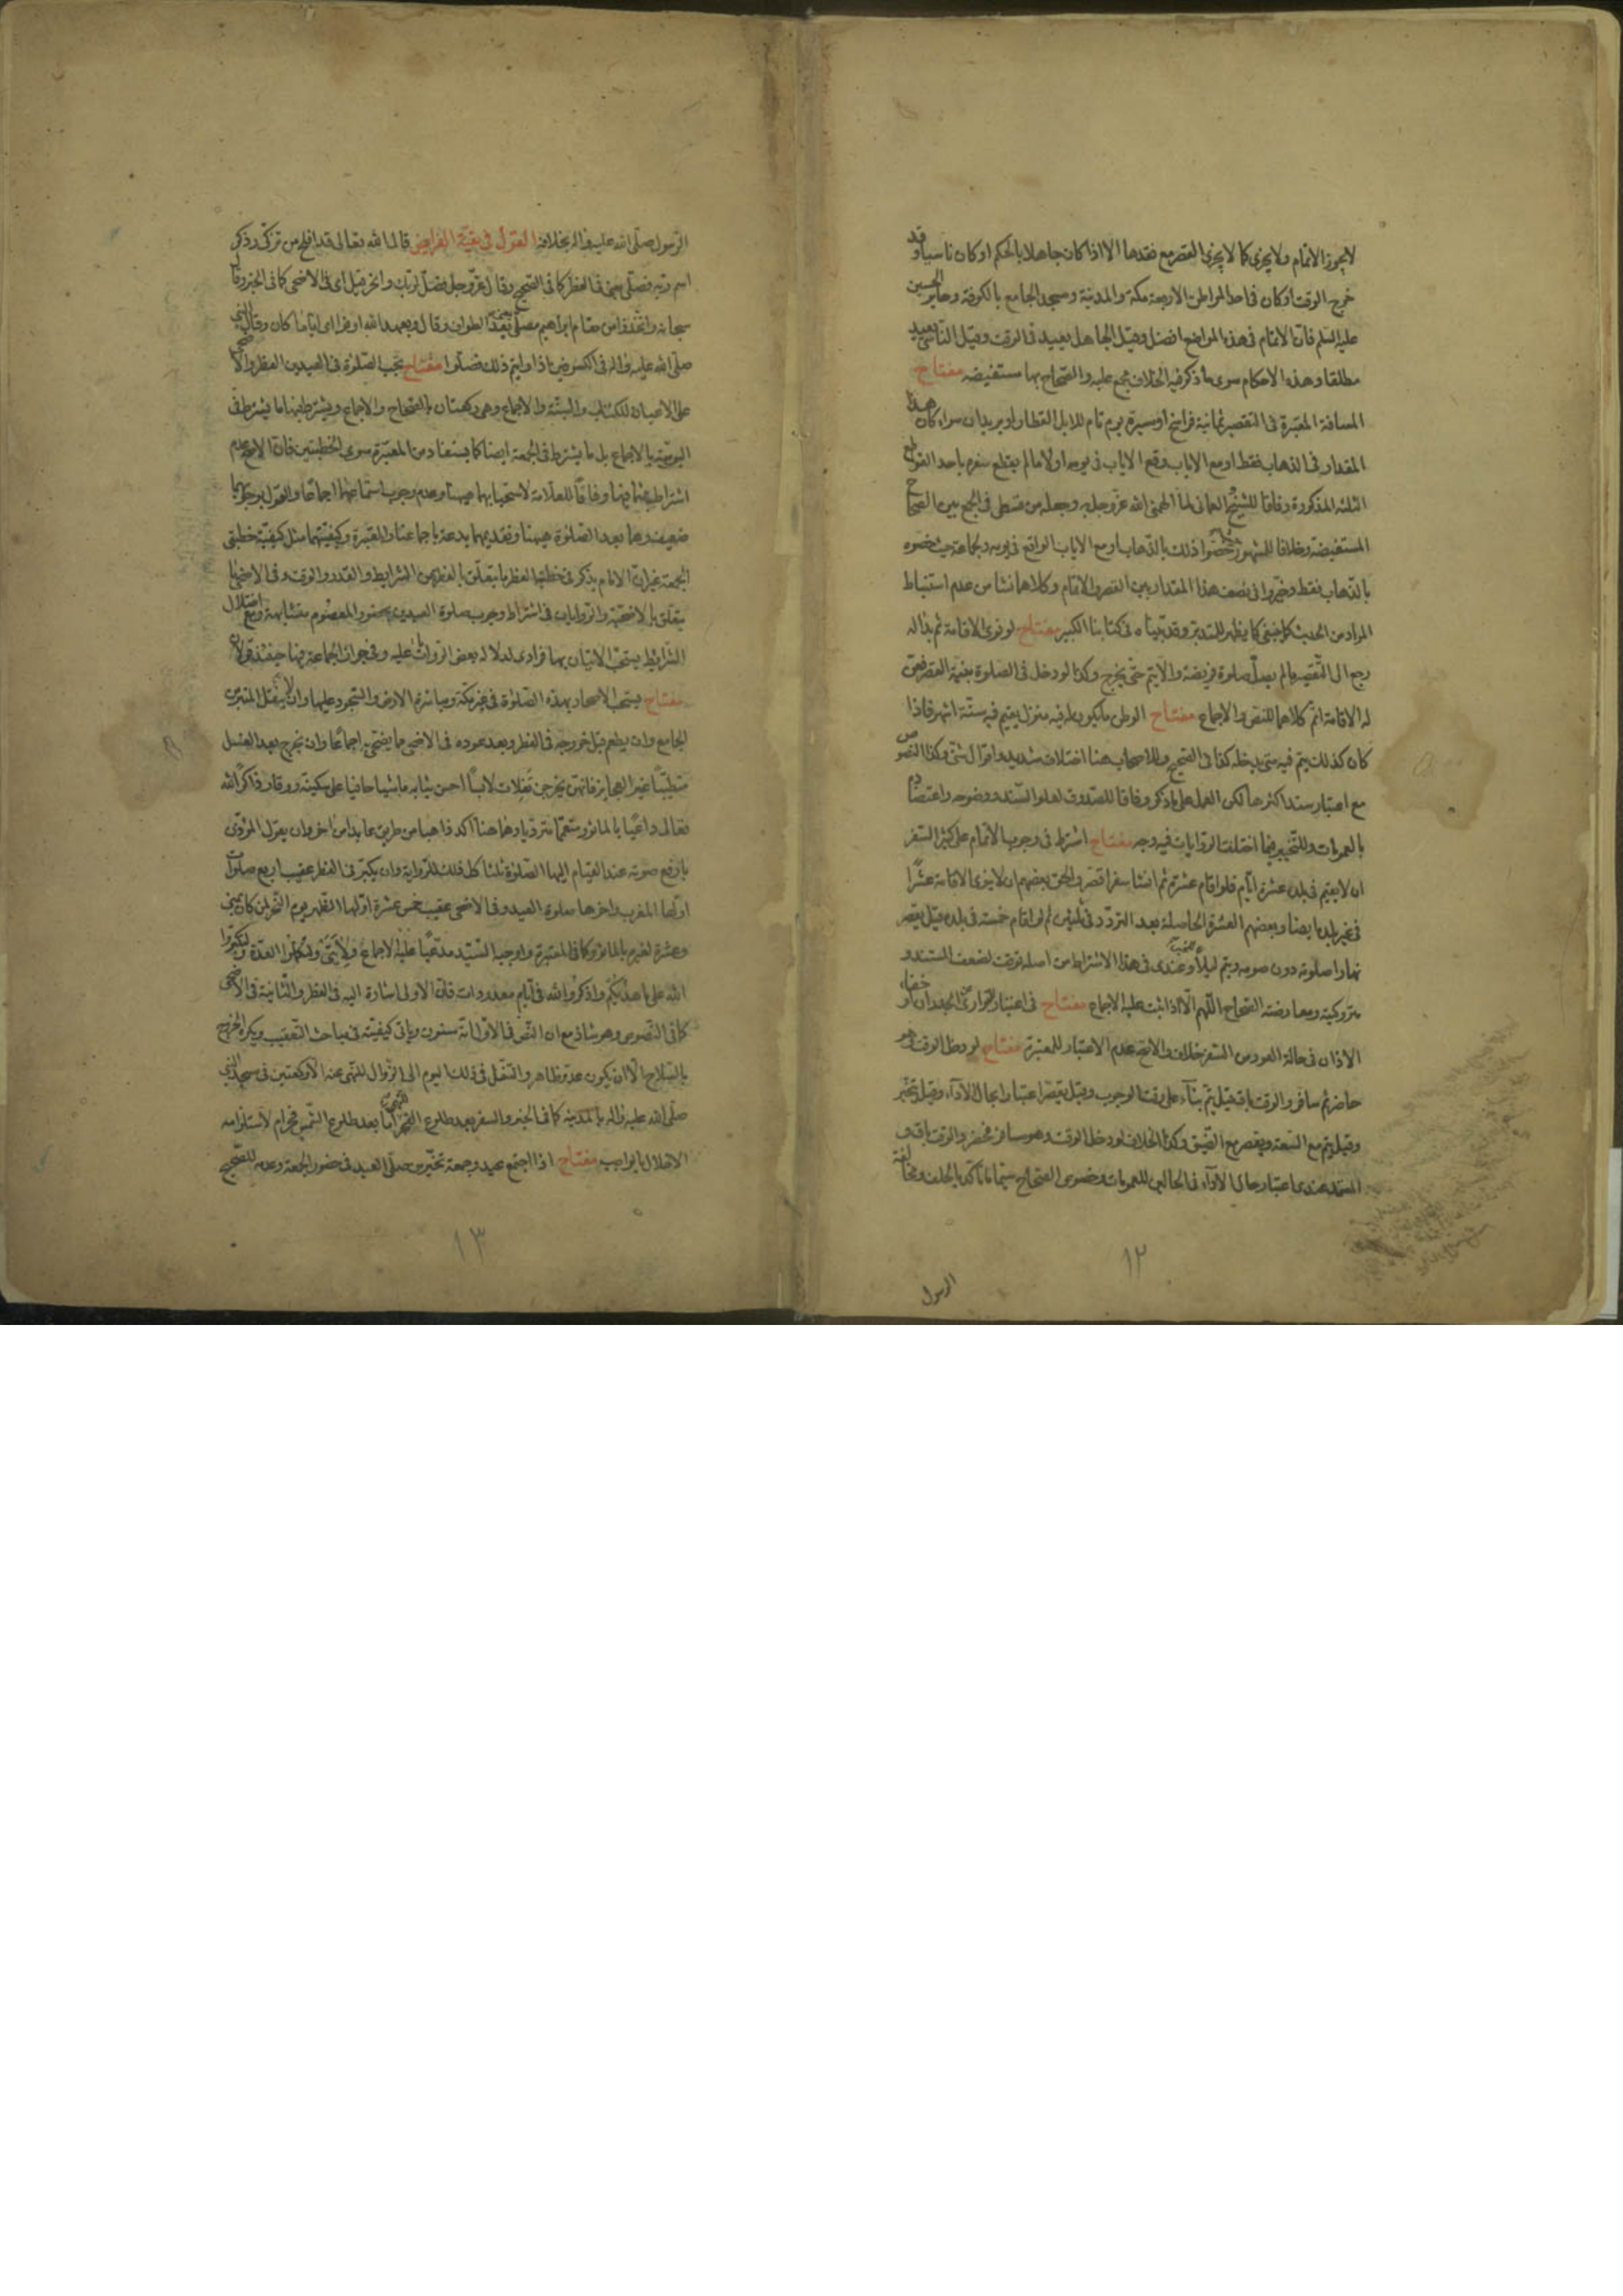 لا يجوز الاتمام ولا يجزى كما لا يجزى القصر مع فقدها الا اذا كان جاهلا بالحكم او كان ناسيا وقد
خرج الوقت او كان فى احد المواطن الاربعة مكة والمدينة ومسجد الجامع بالكوفة وحاير الحسين
عليه السلم فان الاتمام فى هذه المواضع افضل وقيل الجاهل يعيد فى الوقت وقيل الناسى يعيد
مطلقا وهذه الاحكام سوى ما ذكر فيه الخلاف مجمع عليه والصحاح بها مستفيضه مفتاح
المسافة المعتبرة فى التقصير ثمانية فراسخ او مسيرة يوم تام للابل القطار او بريدان سواء كان هذا
المقدار فى الذهاب فقط او مع الاياب وقع الاياب فى يومه او لا ما لم يقطع سفره باحد القواطع
الثلثة المذكورة وفاقا للشيخ العمانى لما الهمنى الله عز وجل به وجعله من قسطى فى الجمع بين الصحاح
المستفيضة وخلافا للمشهور خصوا ذلك بالذهاب او مع الاياب الواقع فى يومه ولجماعة حيث خصوه
بالذهاب فقط وخيروا فى نصف هذا المقدار بين القصر والاتمام وكلاهما نشا من عدم استنباط
المراد من الحديث كما ينبغى كما يظهر للمتدبر وقد بيناه فى كتابنا الكبير مفتاح لو نوى الاقامة ثم بدا له
رجع الى التقصير ما لم يصل صلوة فريضة والا يتم حتى يخرج وكذا لو دخل فى الصلوة بنية القصر فعن
له الاقامة اتم كلاهما للنص والاجماع مفتاح الوطن ما يكون له فيه منزل يقيم فيه ستة اشهر فاذا
كان كذلك يتم فيه متى يدخله كذا فى الصحيح وللاصحاب هنا اختلاف شديد واقوال شتى وكذا النصوص
مع اعتبار سند اكثرها لكن العمل على ما ذكر وفاقا للصدوق لعلو السند ووضوحه واعتضاده
بالعمومات وللتخيير فيما اختلفت الروايات فيه وجه مفتاح اشترط فى وجوب الاتمام على كثير السفر
ان لا يقيم فى بلده عشرة ايام فلو اقام عشرة ثم انشا سفرا قصر والحق بعضهم ان لا ينوى الاقامة عشرا
فى غير بلده ايضا وبعضهم العشرة الحاصلة بعد التردد فى ثلثين ثم لو اقام خمسة فى بلده قيل يقصر
نهارا صلوته دون صومه ويتم ليلا وعندى فى هذا الاشتراط من اصله توقف لضعف المستند و
متروكيته ومعارضته الصحاح اللهم الا اذا ثبت عليه الاجماع مفتاح فى اعتبار توارى الجدران او خفاء
الاذان فى حالة العود من السفر خلاف والاصح عدم الاعتبار للمعتبرة مفتاح لو دخل الوقت وهو
حاضر ثم سافر والوقت باق فقيل يتم بناء على وقت الوجوب وقيل يقصر اعتبارا بحال الاداء وقيل يتخير
وقيل يتم مع السعة ويقصر مع الضيق وكذا الخلاف لو دخل الوقت وهو مسافر فحضر والوقت باق و
المعتمد عندى اعتبار حال الاداء فى الحالين للعمومات وخصوص الصحاح سيما ما تاكد بالحلف ومخالفة
١٢
الرسول
الرسول صلى الله عليه واله بخلافه القول فى بقية الفرايض قال الله تعالى قد افلح من تزكى وذكر
اسم ربه فصلى يعنى فى الفطر كما فى الصحيح وقال عز وجل فصل لربك وانحر قيل اى فى الاضحى كما فى الخبر وقال
سبحانه واتخذوا من مقام ابراهيم مصلى يعنى بعد الطواف وقال وبعهد الله اوفوا اى اياما كان وقال النبى
صلى الله عليه واله فى الكسوفين فاذا رايتم ذلك فصلوا مفتاح تجب الصلوة فى العيدين الفطر والاضحى
على الاعيان للكتاب والسنة والاجماع وهى ركعتان بالصحاح والاجماع ويشترط فيها ما يشترط فى
اليومية بالاجماع بل ما يشترط فى الجمعة ايضا كما يستفاد من المعتبرة سوى الخطبتين فان الاصح عدم
اشتراطهما فيها وفاقا للعلامة لاستحبابهما هيهنا وعدم وجوب استماعهما اجماعا والقول بوجوبها
ضعيف وهما بعد الصلوة هيهنا وتقديمهما بدعة باجماعنا والمعتبرة وكيفيتهما مثل كيفية خطبتى
الجمعة غير ان الامام يذكر فى خطبة الفطر ما يتعلق بالفطرة من الشرايط والقدر والوقت وفى الاضحى ما
يتعلق بالاضحية والروايات فى اشتراط وجوب صلوة العيدين بحضور المعصوم متشابهة ومع اختلال
الشرايط يستحب الاتيان بها فرادى لدلالة بعض الروايات عليه وفى جواز الجماعة فيها حينئذ قولان
مفتاح يستحب الاصحار بهذه الصلوة فى غير مكة ومباشرة الارض والسجود عليها وان لا ينقل المنبر من
الجامع وان يطعم قبل خروجه فى الفطر وبعد عوده فى الاضحى ما يضحى به اجماعا وان يخرج بعد الغسل
متطيبا غير العجايز فانهن يخرجن تفلات لابسا احسن ثيابه ماشيا حافيا على سكينة ووقار ذاكرا لله
تعالى داعيا بالماثور متعمما مترديا وهما هنا اكد ذاهبا من طريق عايدا من اخر وان يقول المؤذن
بارفع صوته عند القيام اليها الصلوة ثلثا كل ذلك للرواية وان يكبر فى الفطر عقيب اربع صلوات
اولها المغرب واخرها صلوة العيد وفى الاضحى عقيب خمس عشرة اولها الظهر يوم النحر لمن كان بمنى
وعشرة لغيره بالماثور كما فى المعتبرة واوجبه السيد مدعيا عليه الاجماع ولايتى ولتكملوا العدة ولتكبروا
الله على ما هديكم واذكروا الله فى ايام معدودات فان الاولى اشارة اليه فى الفطر والثانية فى الاضحى
كما فى النصوص وهو شاذ مع ان النص فى الاول انه مسنون وياتى كيفيته فى مباحث التعقيب ويكره الخروج
بالسلاح الا ان يكون عدو ظاهر والتنفل فى ذلك اليوم الى الزوال للنهى عنه الا ركعتين فى مسجد النبى
صلى الله عليه واله بالمدينة كما فى الخبر والسفر بعد طلوع الفجر للنهى اما بعد طلوع الشمس فحرام لاستلزامه
الاخلال بالواجب مفتاح اذا اجتمع عيد وجمعة تخير من صلى العيد فى حضور الجمعة وعدمه للصحيح
١٣